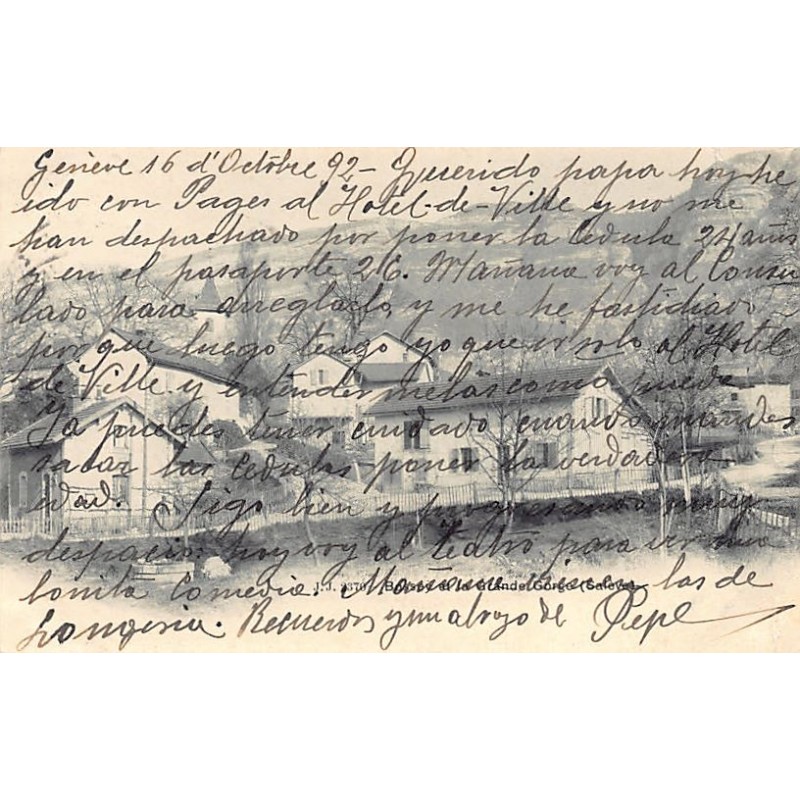 Genève 16 d'Octobre 92 - Querido papa hoy he
ido con Pages al Hotel-de-Ville y no me
han despachado por poner la cedula 24 años
y en el pasaporte 26. Mañana voy al Consu
lado para arreglarlo, y me he fastidiado
por que luego tengo yo que ir solo al Hotel
de-Ville y entendermelas como pueda
Ya puedes tener cuidado cuando mandes
sacar las cedulas poner la verdadera
edad. Sigo bien y progresando muy
despacio; hoy voy al teatro para ver una
bonita Comedia. Mañana las de
Longoria. Recuerdos y un abrazo de Pepe
J.J. Bossey et la Grande Gorge (Salève)